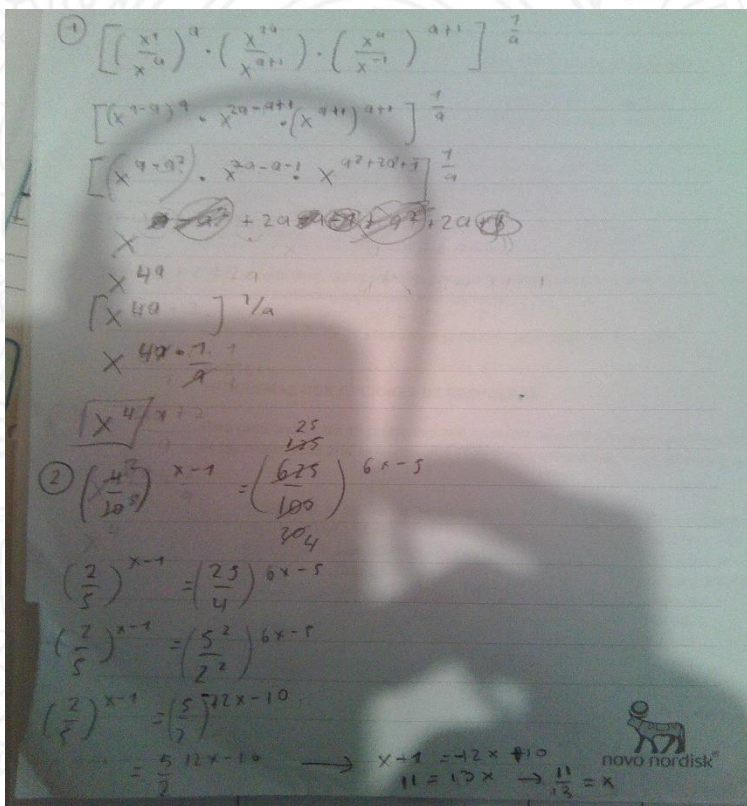 ① [(x^1/x^a)^a · (x^2a/x^a+1) · (x^a/x^-1)^a+1]^1/a
[(x^1-a)^a · x^2a-a+1 · (x^a+1)^a+1]^1/a
[(x^a-a²) · x^2a-a-1 · x^a²+2a+1]^1/a
x^ + 2a + 2a
x^4a
[x^4a]^1/a
x^4a · 1/a
x^4
② (4²/10 5)^x-1 = (25 125 625/100 20 4)^6x-5
(2/5)^x-1 = (25/4)^6x-5
(2/5)^x-1 = (5²/2²)^6x-5
(2/5)^x-1 = (5/2)^12x-10
= 5/2^12x-10 → x-1 = -12x +10
11 = 13x → 11/13 = x
novo nordisk®